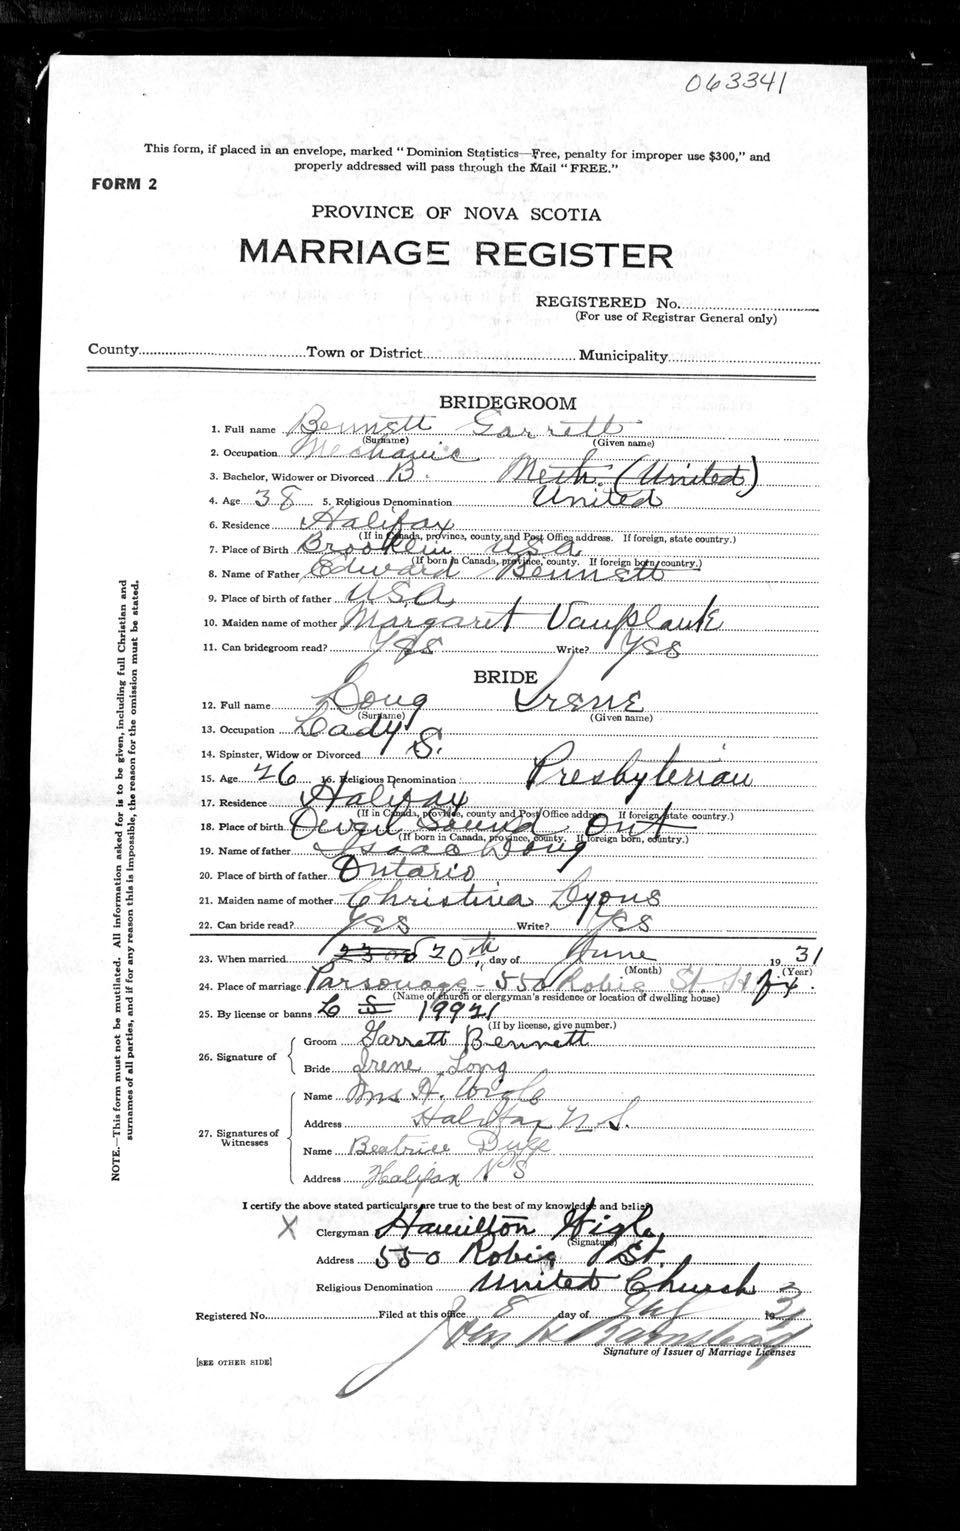 063341
This form, if placed in an envelope, marked "Dominion Statistics—Free, penalty for improper use $300," and
properly addressed will pass through the Mail "FREE."
FORM 2
PROVINCE OF NOVA SCOTIA
MARRIAGE REGISTER
REGISTERED No.
(For use of Registrar General only)
County Town or District Municipality
BRIDEGROOM
1. Full name Bennett Garrett
(Surname) (Given name)
2. Occupation Mechanic
3. Bachelor, Widower or Divorced B. Meth. (United)
4. Age 38 5. Religious Denomination United
6. Residence Halifax
(If in Canada, province, county and Post Office address. If foreign, state country.)
7. Place of Birth Brooklin USA
(If born in Canada, province, county. If foreign born, country.)
8. Name of Father Edward Bennett
9. Place of birth of father USA
10. Maiden name of mother Margaret Vanplank
11. Can bridegroom read? Yes Write? Yes
BRIDE
12. Full name Long Irene
(Surname) (Given name)
13. Occupation Lady
14. Spinster, Widow or Divorced S.
15. Age 26 16. Religious Denomination Presbyterian
17. Residence Halifax
(If in Canada, province, county and Post Office address. If foreign, state country.)
18. Place of birth Owen Sound Ont
(If born in Canada, province, county. If foreign born, country.)
19. Name of father Isaac Long
20. Place of birth of father Ontario
21. Maiden name of mother Christina Lyons
22. Can bride read? Yes Write? Yes
23. When married 20th day of June 1931
(Month) (Year)
24. Place of marriage Parsonage - 550 Robie St. Hfx.
(Name of church or clergyman's residence or location of dwelling house)
25. By license or banns L 19921
(If by license, give number.)
26. Signature of
Groom Garrett Bennett
Bride Irene Long
27. Signatures of Witnesses
Name Mrs H. Wigle
Address Halifax N.S.
Name Beatrice
Address Halifax N S
NOTE.—This form must not be mutilated. All information asked for is to be given, including full Christian and
surnames of all parties, and if for any reason this is impossible, the reason for the omission must be stated.
I certify the above stated particulars are true to the best of my knowledge and belief
X Clergyman Hamilton Wigle
(Signature)
Address 550 Robie St.
Religious Denomination United Church
Registered No. Filed at this office 8 day of July 1931
Signature of Issuer of Marriage Licenses
[SEE OTHER SIDE]